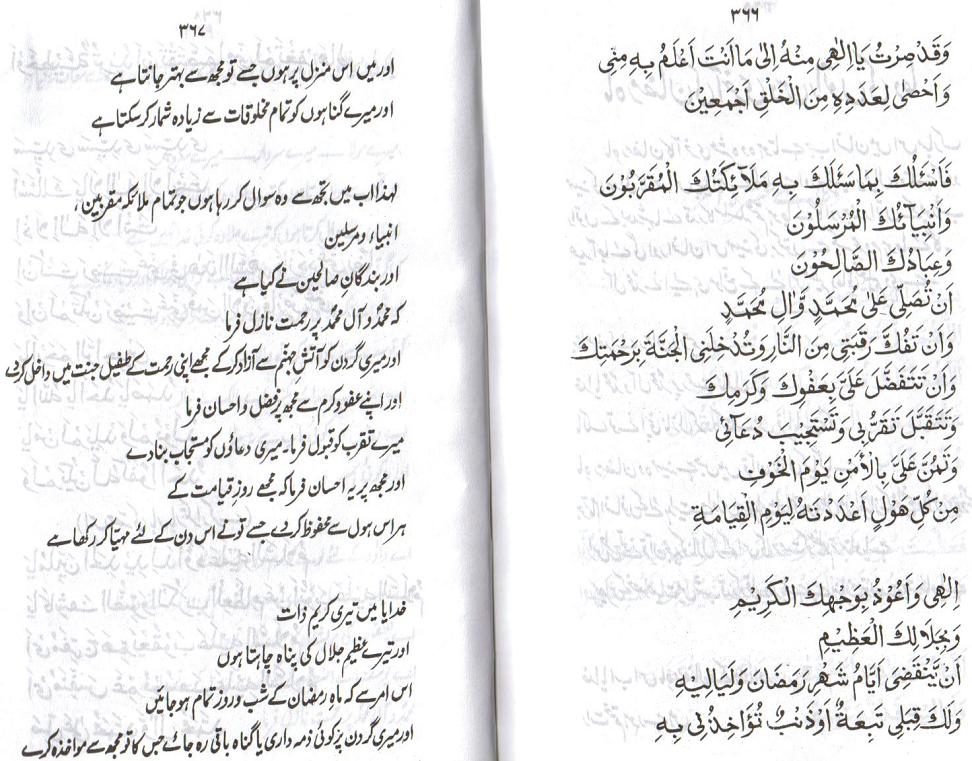 ۳۶۶
وَقَدْ صِرْتُ يَا اِلٰهِى مِنْهُ اِلٰى مَا اَنْتَ اَعْلَمُ بِهٖ مِنِّى
وَاَحْصٰى لِعَدَدِهٖ مِنَ الْخَلْقِ اَجْمَعِيْنَ
فَاَسْئَلُكَ بِمَا سَئَلَكَ بِهٖ مَلَآئِكَتُكَ الْمُقَرَّبُوْنَ
وَاَنْبِيَآئُكَ الْمُرْسَلُوْنَ
وَعِبَادُكَ الصَّالِحُوْنَ
اَنْ تُصَلِّىَ عَلٰى مُحَمَّدٍ وَّاٰلِ مُحَمَّدٍ
وَاَنْ تَفُكَّ رَقَبَتِى مِنَ النَّارِ وَتُدْخِلَنِى الْجَنَّةَ بِرَحْمَتِكَ
وَاَنْ تَتَفَضَّلَ عَلَىَّ بِعَفْوِكَ وَكَرَمِكَ
وَتَتَقَبَّلَ تَقَرُّبِى وَتَسْتَجِيْبَ دُعَآئِى
وَتَمُنَّ عَلَىَّ بِالْاَمْنِ يَوْمَ الْخَوْفِ
مِنْ كُلِّ هَوْلٍ اَعْدَدْتَهٗ لِيَوْمِ الْقِيَامَةِ
اِلٰهِى وَاَعُوْذُ بِوَجْهِكَ الْكَرِيْمِ
وَبِجَلَالِكَ الْعَظِيْمِ
اَنْ يَّنْقَضِىَ اَيَّامُ شَهْرِ رَمَضَانَ وَلَيَالِيْهِ
وَلَكَ قِبَلِى تَبِعَةٌ اَوْ ذَنْبٌ تُؤَاخِذُنِى بِهٖ
۳۶۷
اور میں اس منزل پر ہوں جسے تو مجھ سے بہتر جانتا ہے
اور میرے گناہوں کو تمام مخلوقات سے زیادہ شمار کر سکتا ہے
لہٰذا اب میں تجھ سے وہ سوال کر رہا ہوں جو تمام ملائکہ مقربین،
انبیاء و مرسلین
اور بندگانِ صالحین نے کیا ہے
کہ محمدؐ و آل محمدؐ پر رحمت نازل فرما
اور میری گردن کو آتشِ جہنم سے آزاد کر کے مجھے اپنی رحمت کے طفیل جنت میں داخل کر دے
اور اپنے عفو و کرم سے مجھ پر فضل و احسان فرما
میرے تقرب کو قبول فرما۔ میری دعاؤں کو مستجاب بنا دے
اور مجھ پر یہ احسان فرما کہ مجھے روزِ قیامت کے
ہر اس ہول سے محفوظ کر دے جسے تو نے اس دن کے لئے مہیّا کر رکھا ہے
خدایا میں تیری کریم ذات
اور تیرے عظیم جلال کی پناہ چاہتا ہوں
اس امر سے کہ ماہِ رمضان کے شب و روز تمام ہو جائیں
اور میری گردن پر کوئی ذمہ داری یا گناہ باقی رہ جائے جس کا تو مجھ سے مواخذہ کرے